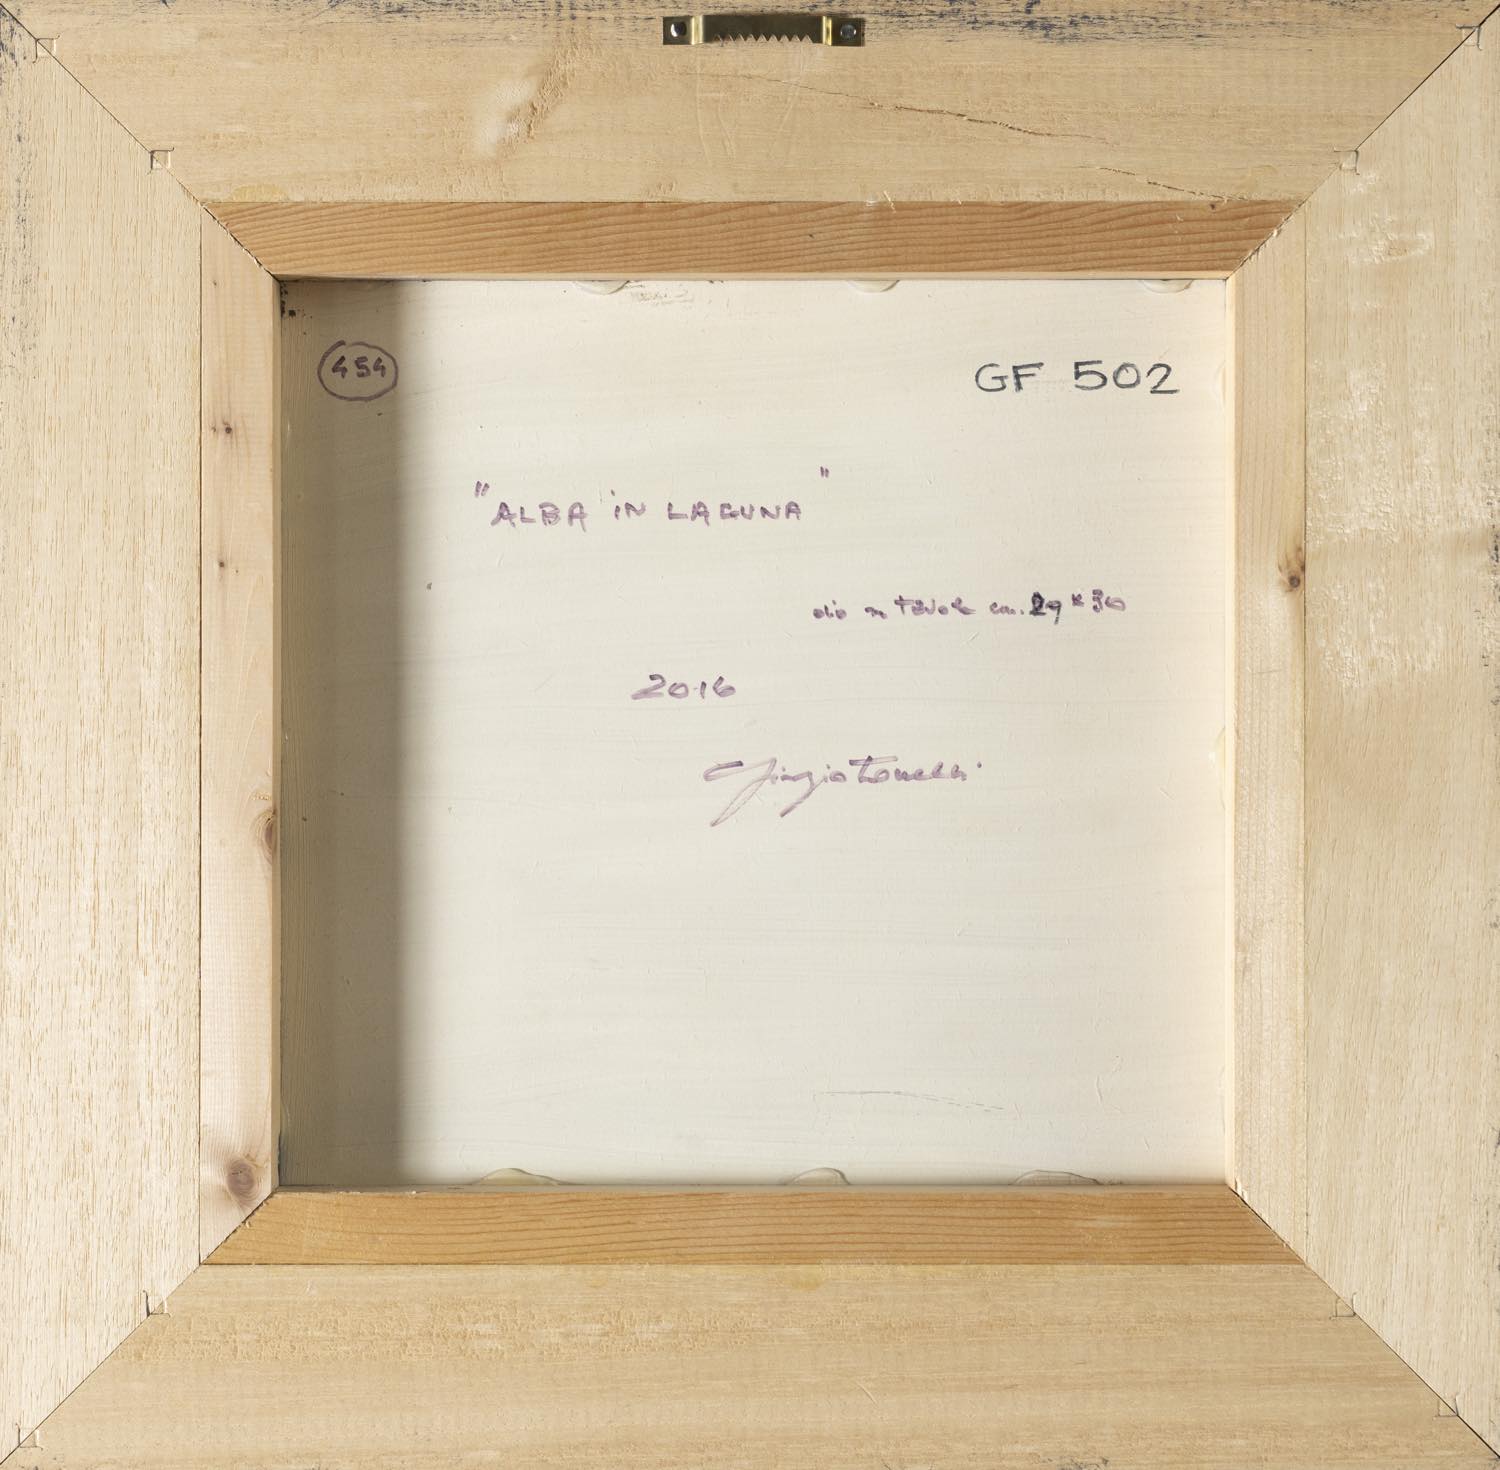 454
GF 502
"ALBA IN LAGUNA"
olio su tavola cm. 29 x 30
2016
Giorgio Tonelli